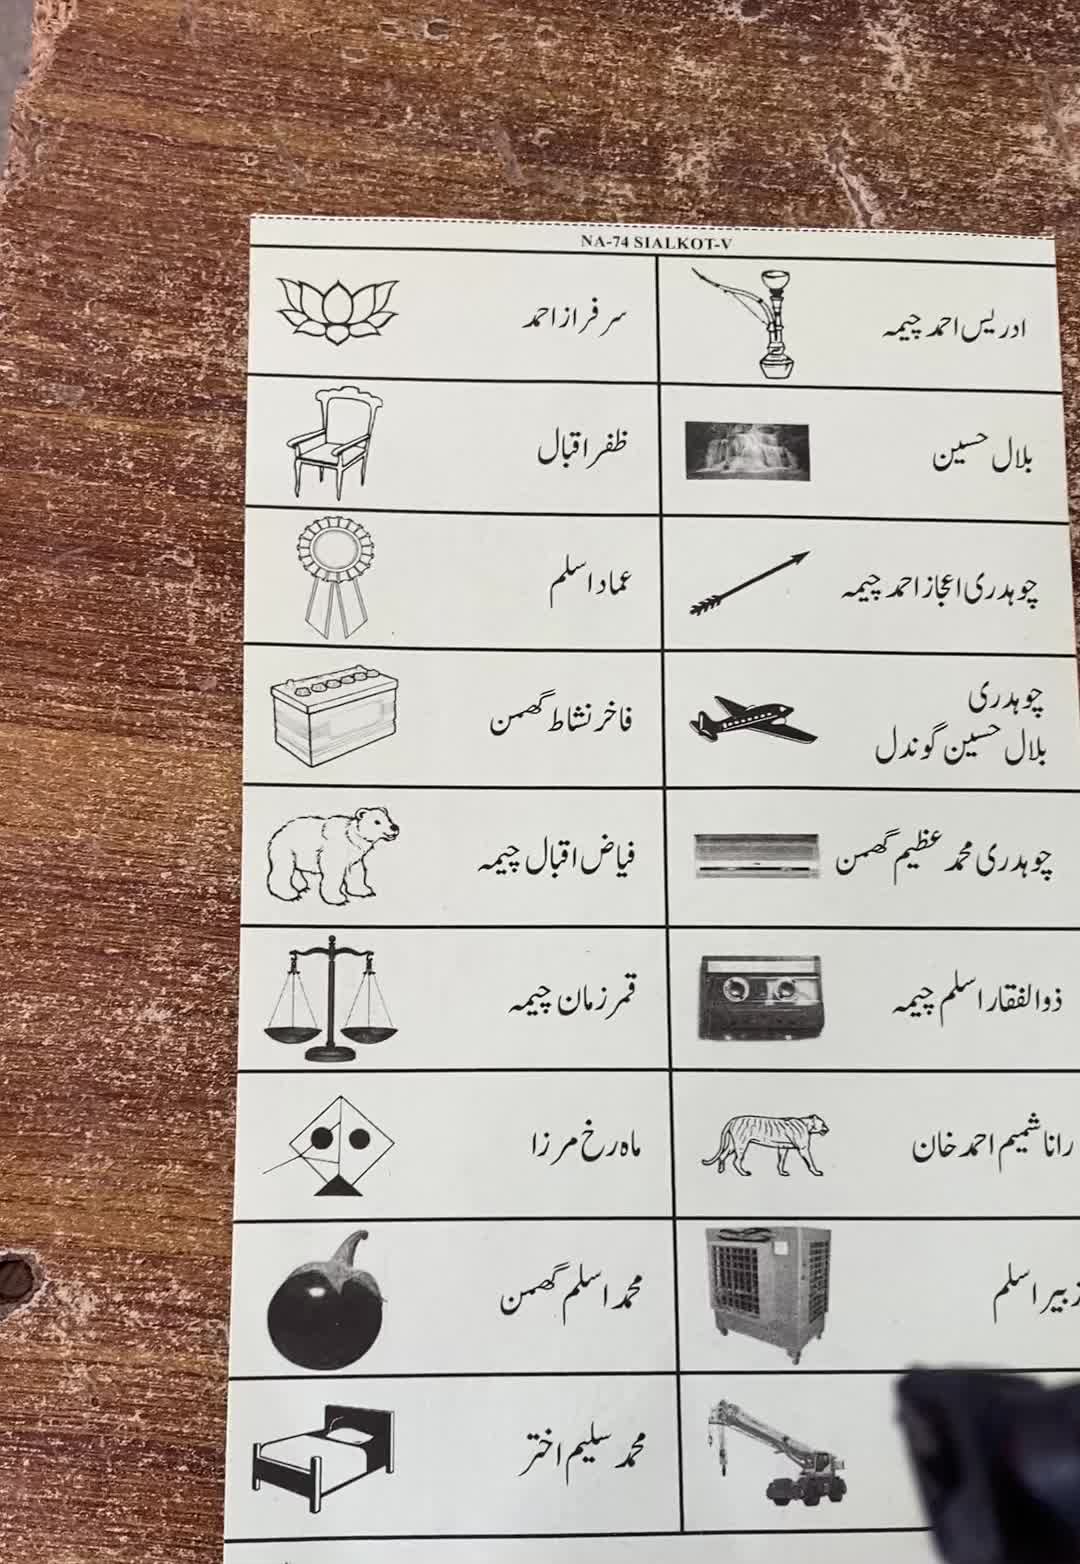 NA-74 SIALKOT-V
ادریس احمد چیمہ
سرفراز احمد
بلال حسین
ظفر اقبال
چوہدری اعجاز احمد چیمہ
عماد اسلم
چوہدری
بلال حسین گوندل
فاخر نشاط گھمن
چوہدری محمد عظیم گھمن
فیاض اقبال چیمہ
ذوالفقار اسلم چیمہ
قمر زمان چیمہ
رانا شمیم احمد خان
ماہ رخ مرزا
زبیر اسلم
محمد اسلم گھمن
محمد سلیم اختر